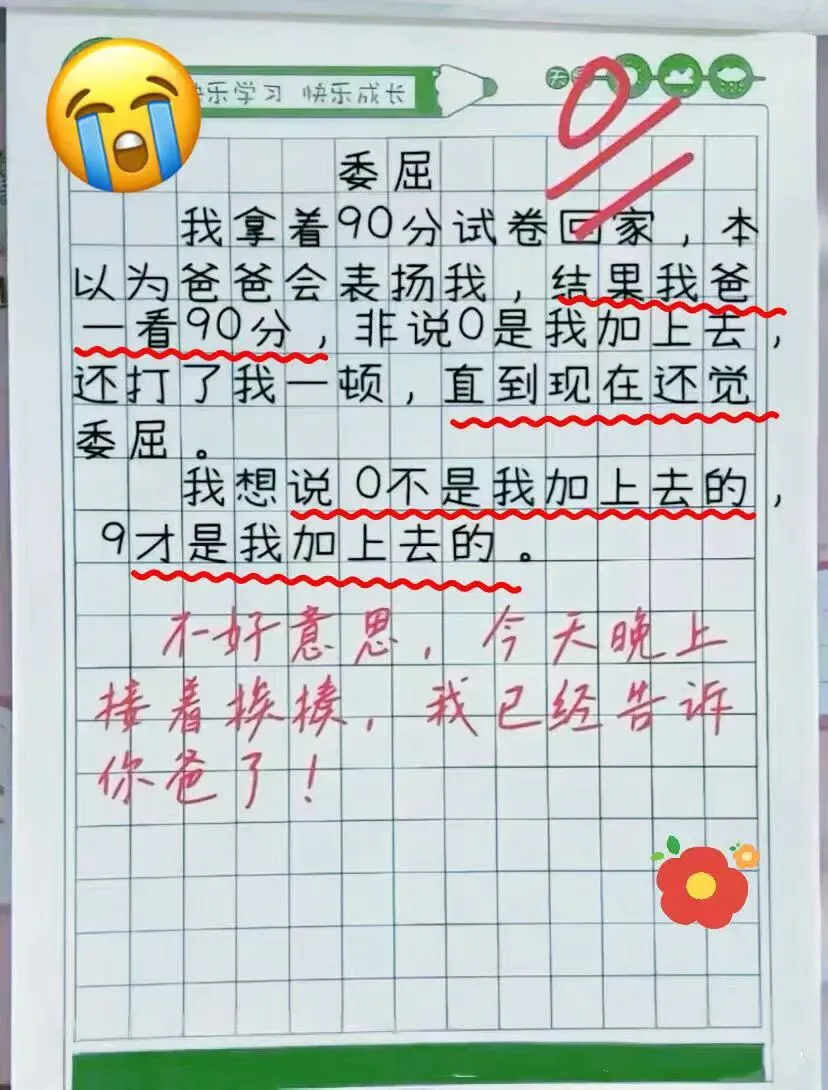 快乐学习 快乐成长
0
委屈
我拿着90分试卷回家，本
以为爸爸会表扬我，结果我爸
一看90分，非说0是我加上去，
还打了我一顿，直到现在还觉
委屈。
我想说0不是我加上去的，
9才是我加上去的。
不好意思，今天晚上
接着挨揍，我已经告诉
你爸了！